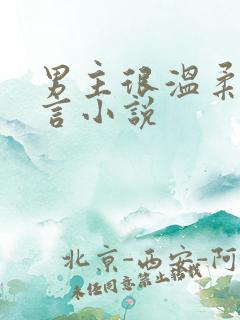 男主很温柔
言小说
北京-西安-阿
未经同意禁止搬载